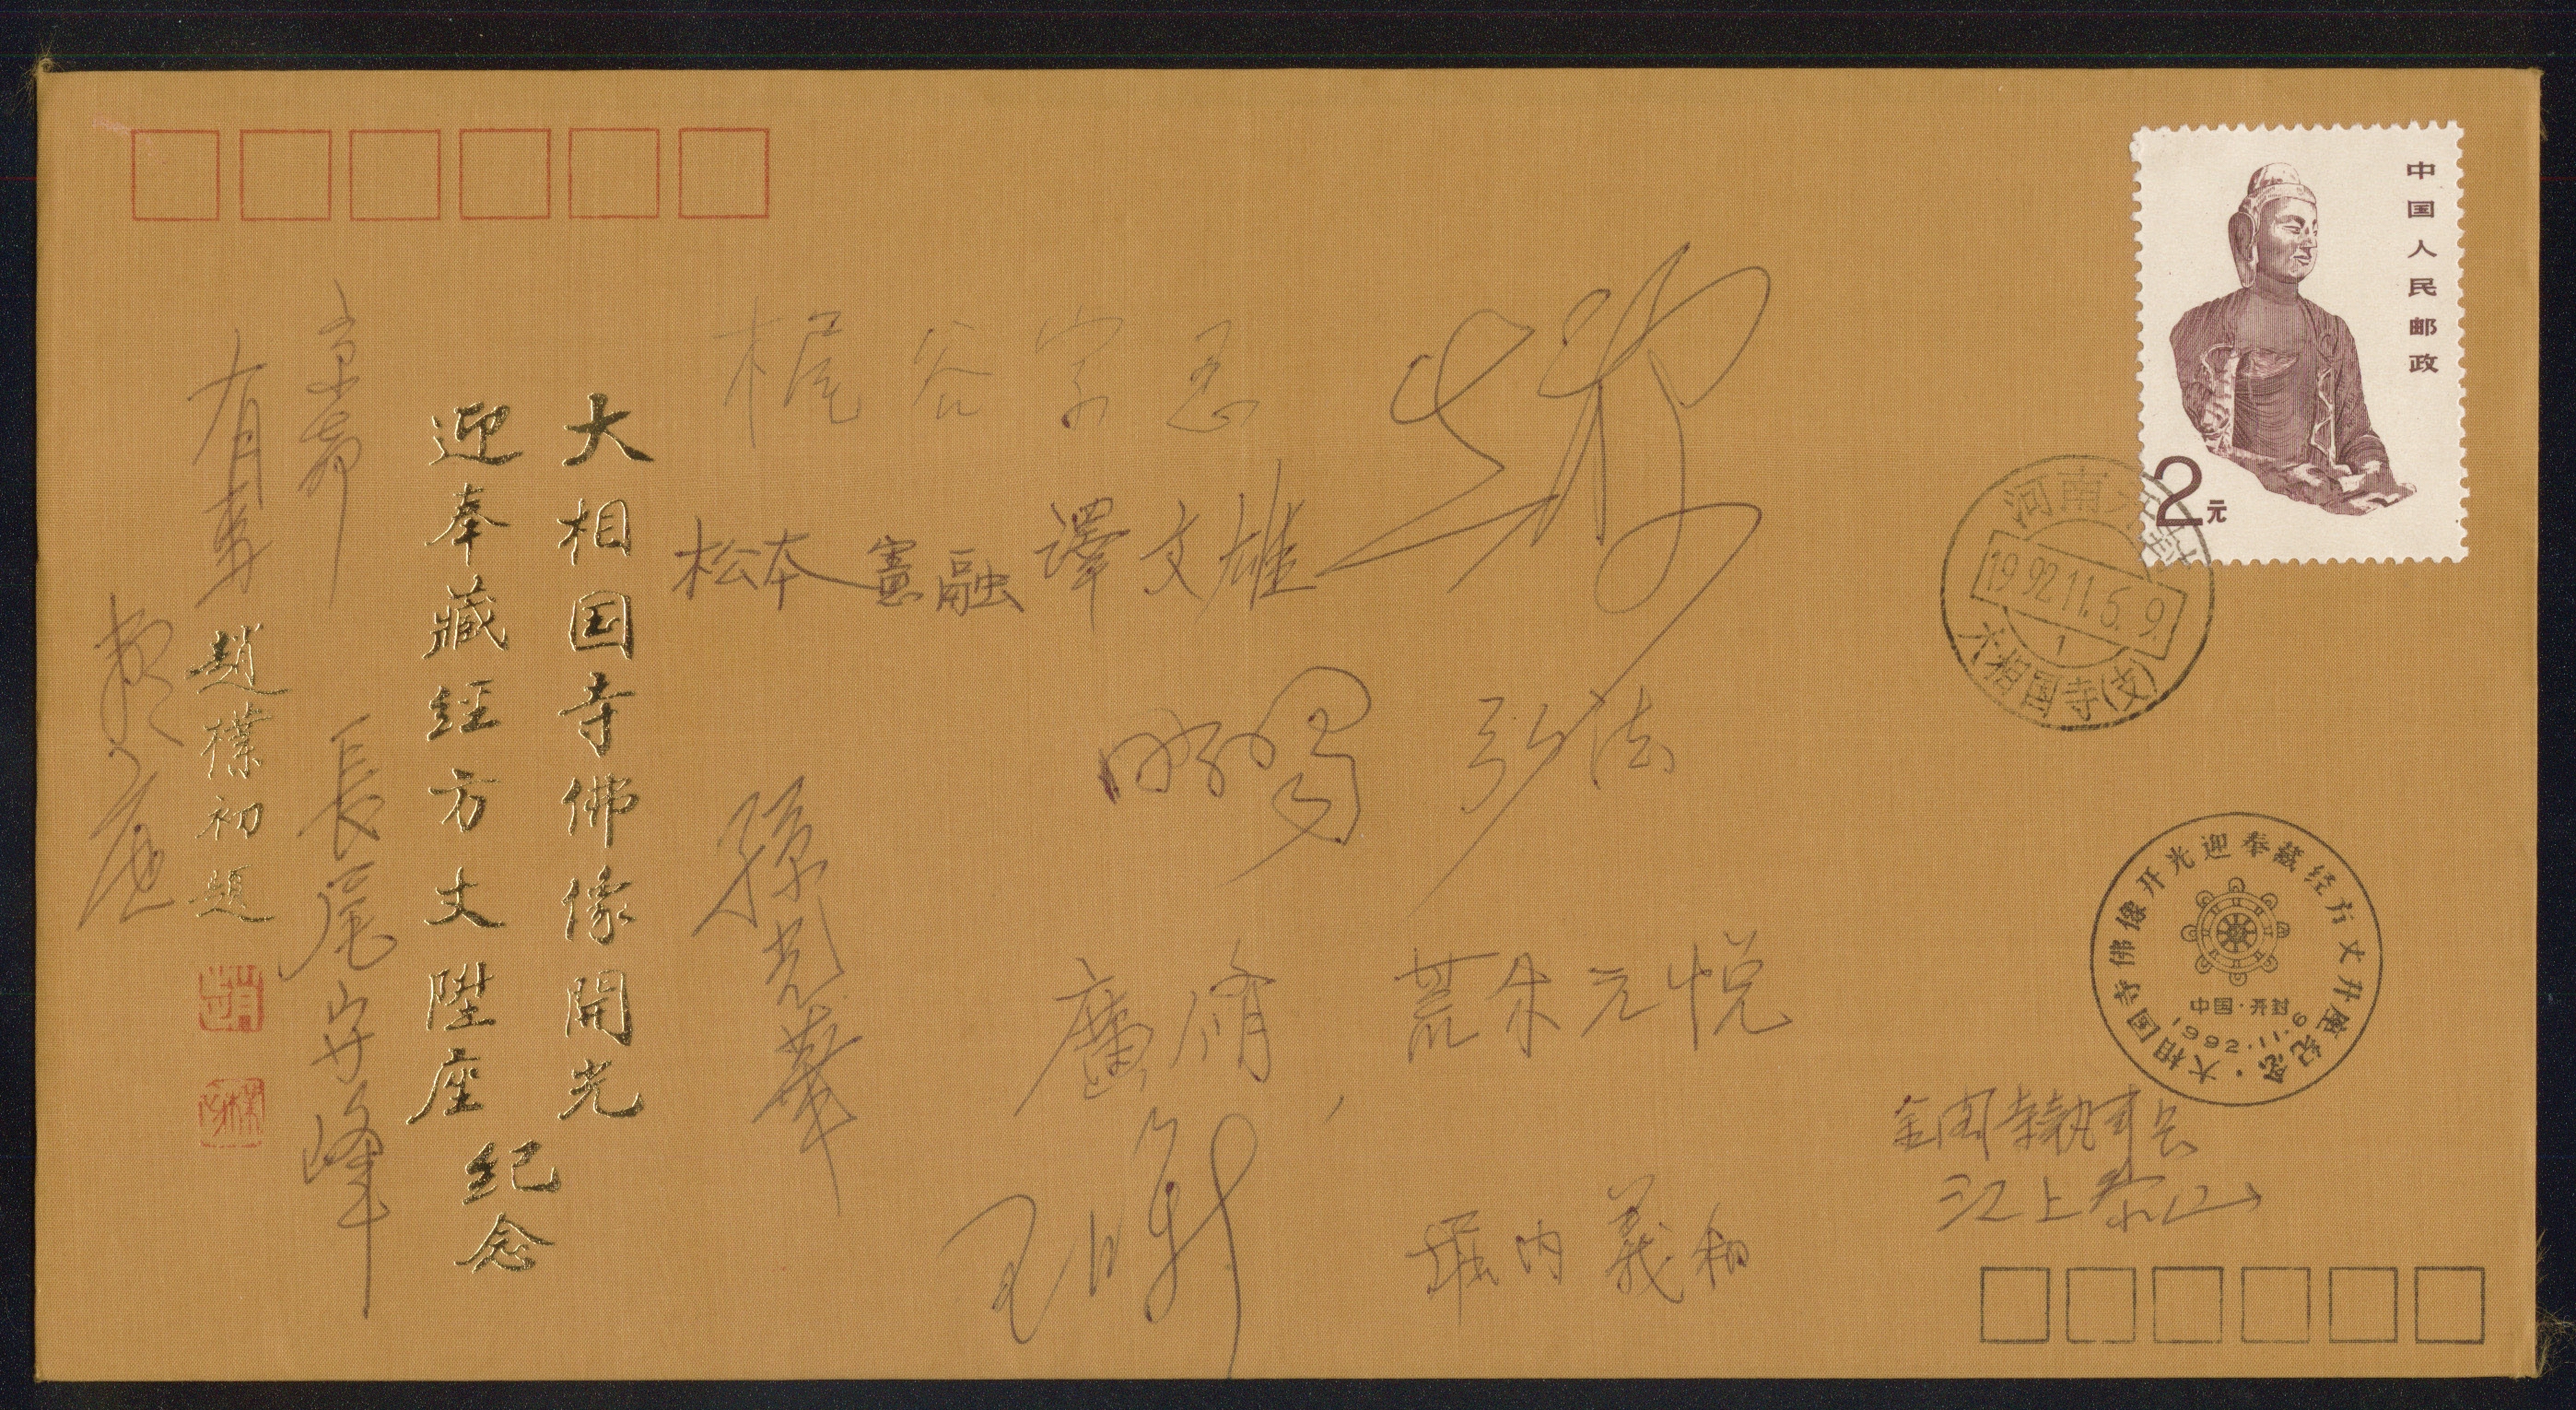 大相国寺佛像開光
迎奉藏经方丈陞座
纪念
趙樸初題
中国人民邮政
2元
河南开封
1992.11.6.9.
1
大相国寺(支)
大相国寺佛像开光迎奉藏经方丈升座纪念
中国·开封
1992.11.6
梶谷宗忍
松本憲融
譯文雄
弘法
荒木元悦
長尾宗峰
孫光華
廣脩
堀内義和
金閣寺執事長
江上泰山
有馬